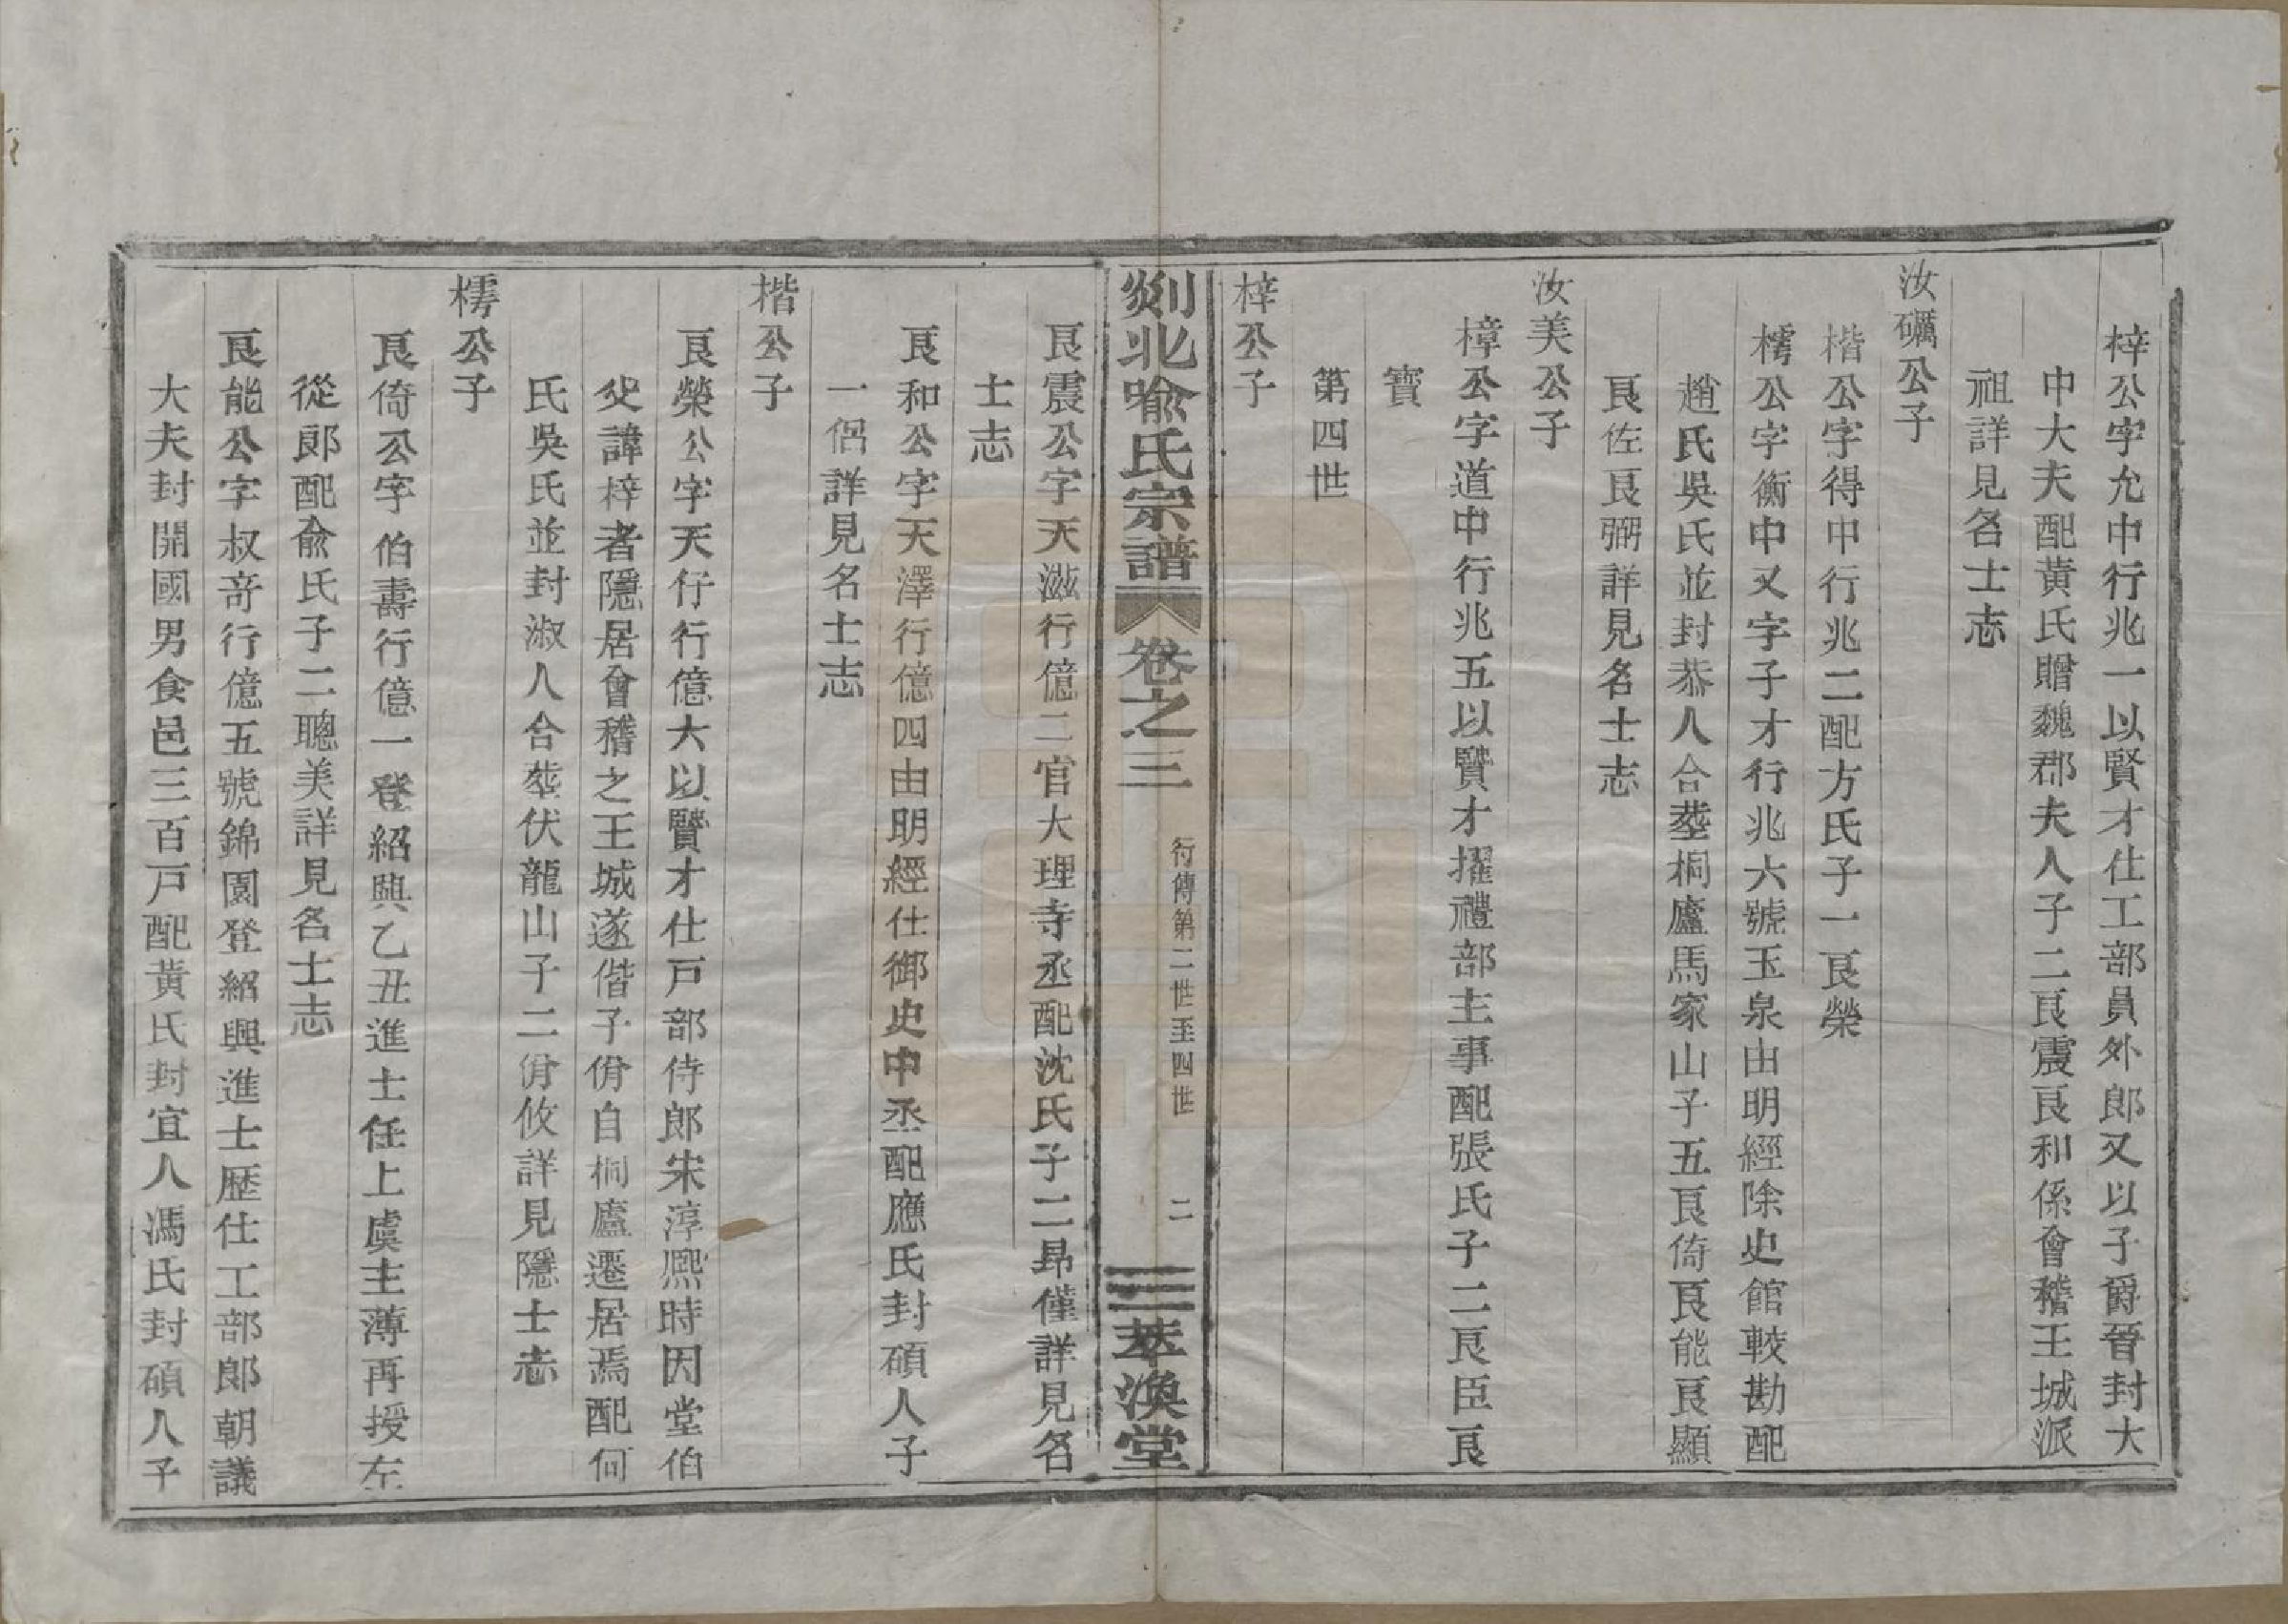 梓公字允中行兆一以賢才仕工部員外郎又以子爵晉封大
中大夫配黃氏贈魏郡夫人子二良震良和係會稽王城派
祖詳見名士志
汝礪公子
楷公字得中行兆二配方氏子一良榮
樗公字衡中又字子才行兆六號玉泉由明經除史館較勘配
趙氏吳氏並封恭人合塟桐廬馬家山子五良倚良能良顯
良佐良弼詳見名士志
汝美公子
樟公字道中行兆五以賢才擢禮部主事配張氏子二良臣良
寶
第四世
梓公子
剡北喻氏宗譜
卷之三
行傳第二世至四世
二
萃渙堂
良震公字天滋行億二官大理寺丞配沈氏子二昻僅詳見名
士志
良和公字天澤行億四由明經仕御史中丞配應氏封碩人子
一侶詳見名士志
楷公子
良榮公字天仔行億大以賢才仕戸部侍郎宋淳熙時因堂伯
父諱梓者隱居會稽之王城遂偕子佾自桐廬遷居焉配何
氏吳氏並封淑人合塟伏龍山子二佾攸詳見隱士志
樗公子
良倚公字伯壽行億一登紹興乙丑進士任上虞主薄再授左
從郎配俞氏子二聰美詳見名士志
良能公字叔竒行億五號錦園登紹興進士歷仕工部郎朝議
大夫封開國男食邑三百戸配黃氏封宜人馮氏封碩人子